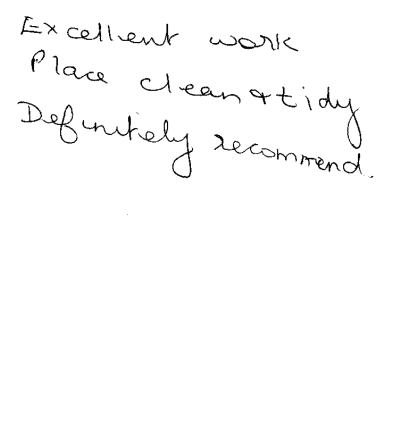 Excellent work
Place clean & tidy
Definitely recommend.